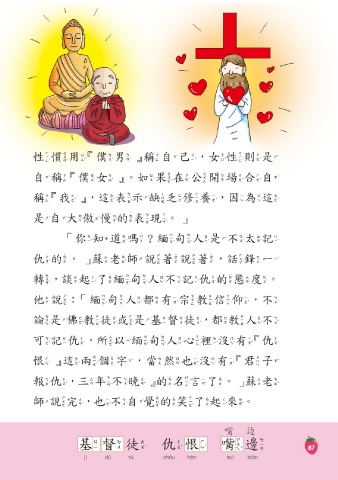 性慣用『僕男』稱自己，女性則是
自稱『僕女』。如果在公開場合自
稱『我』，這表示缺乏修養，因為這
是自大傲慢的表現。」
「你知道嗎？緬甸人是不太記
仇的。」蘇老師說著說著，話鋒一
轉，談起了緬甸人不記仇的態度。
他說：「緬甸人都有宗教信仰，不
論是佛教徒或是基督徒，都教人不
可記仇，所以緬甸人心裡沒有『仇
恨』這兩個字，當然也沒有『君子
報仇，三年不晚』的名言了。」蘇老
師說完，也不自覺的笑了起來。
嘴 边
基督徒 仇恨 嘴邊
jī dū tú chóu hèn zuǐ biān
87